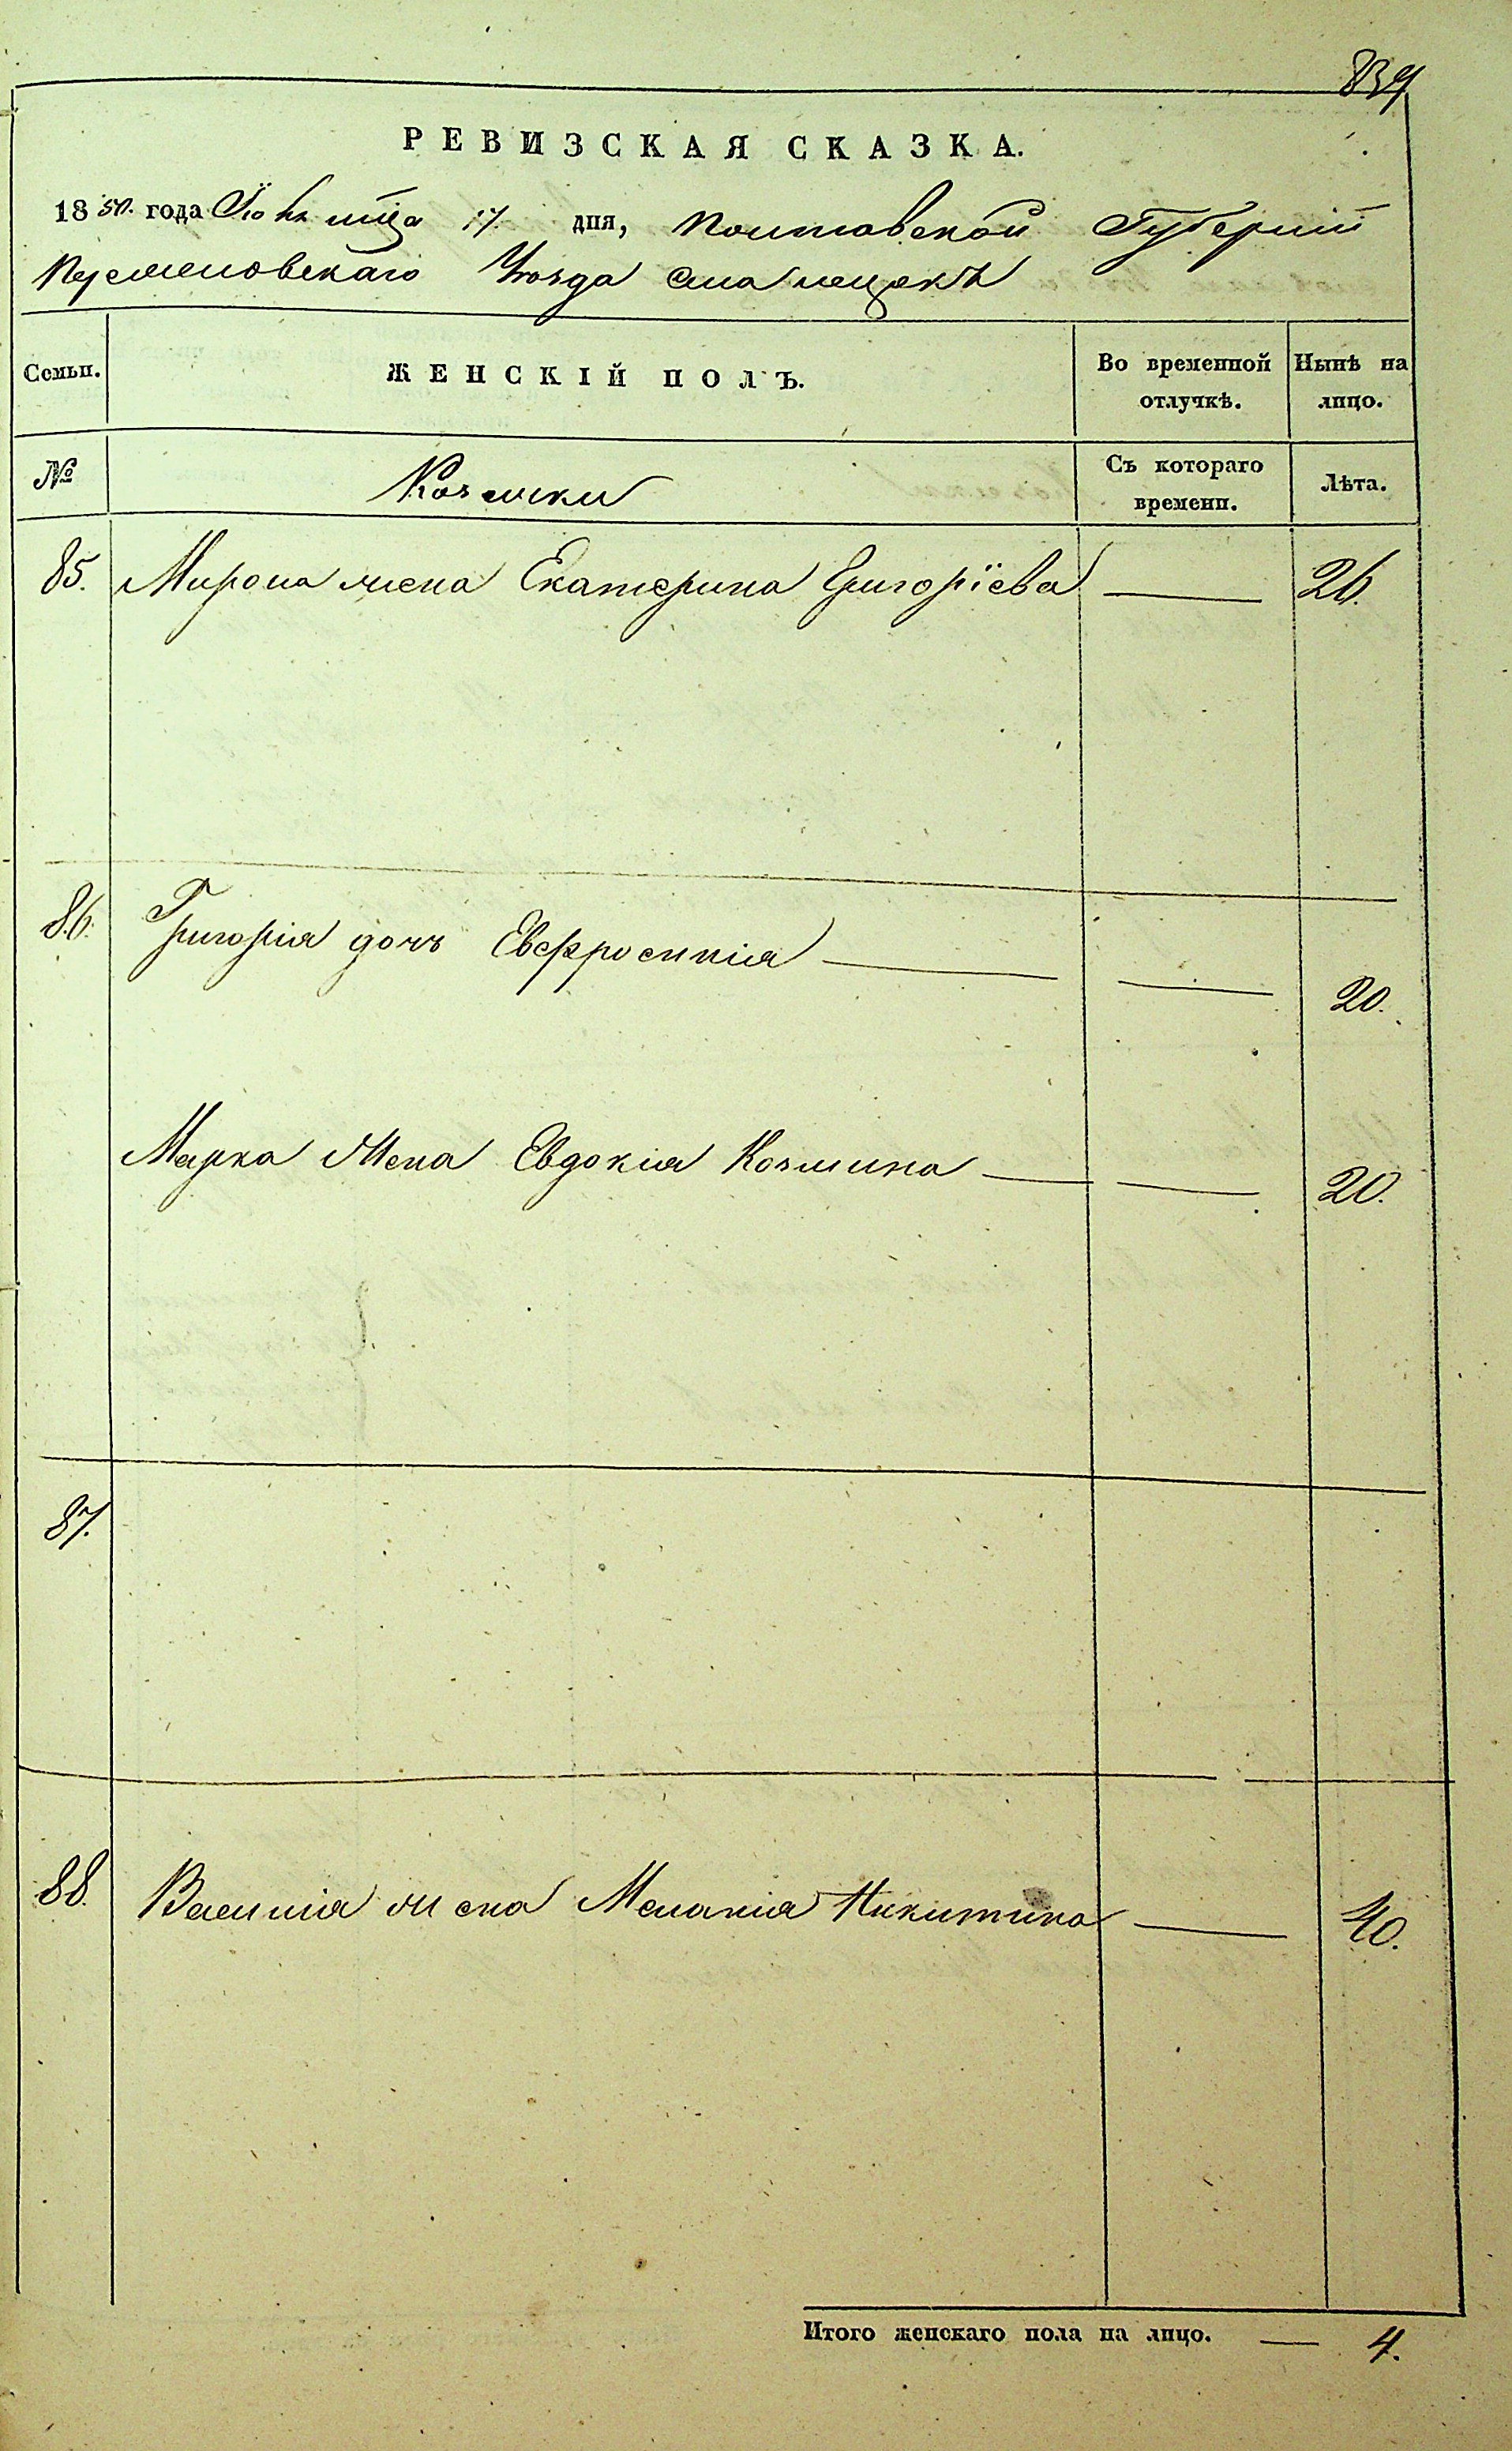 839
РЕВИЗСКАЯ СКАЗКА.
1850. года Іюня мца 17 дня, Полтавской Губерніи
Уезда
Семьи. ЖЕНСКІЙ ПОЛЪ. Во временной отлучкѣ. Нынѣ на лицо.
№ Козачки Съ котораго времени. Лѣта.
85. Мирона жена Екатерина Григоріева — 26.
86. Григорія дочь Евфросинія — — 20.
Марка жена Евдокія Козмина — — 20.
87.
88. Василія жена Меланія Никитина — 40.
Итого женскаго пола на лицо. — 4.